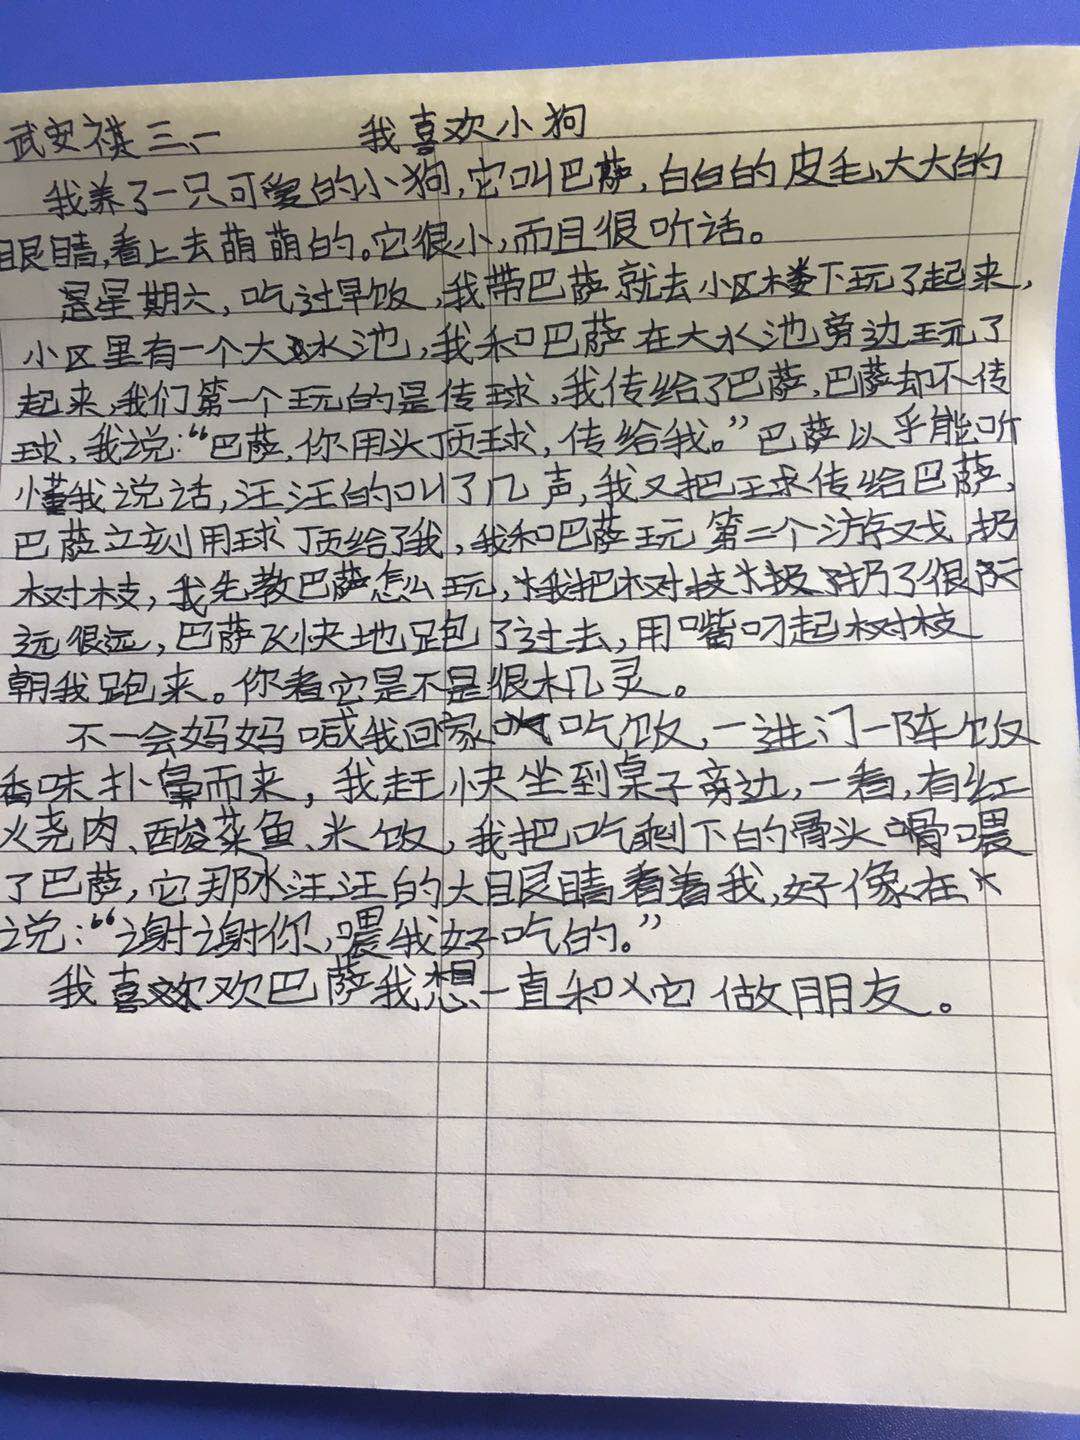 武安祺 三、一 我喜欢小狗
我养了一只可爱的小狗,它叫巴萨,白白的皮毛,大大的
眼睛,看上去萌萌的。它很小,而且很听话。
星期六,吃过早饭,我带巴萨就去小区楼下玩了起来,
小区里有一个大水池,我和巴萨在大水池旁边玩了
起来,我们第一个玩的是传球,我传给了巴萨,巴萨却不传
球,我说:“巴萨,你用头顶球,传给我。”巴萨以乎能听
懂我说话,汪汪的叫了几声,我又把球传给巴萨,
巴萨立刻用球顶给了我,我和巴萨玩第二个游戏扔
树枝,我先教巴萨怎么玩,我把树枝扔了很
远很远,巴萨飞快地跑了过去,用嘴叼起树枝
朝我跑来。你看它是不是很机灵。
不一会妈妈喊我回家吃饭,一进门一阵饭
香味扑鼻而来,我赶快坐到桌子旁边,一看,有红
烧肉、酸菜鱼、米饭,我把吃剩下的骨头喂
了巴萨,它那水汪汪的大眼睛看着我,好像在
说:“谢谢你,喂我好吃的。”
我喜欢巴萨我想一直和它做朋友。